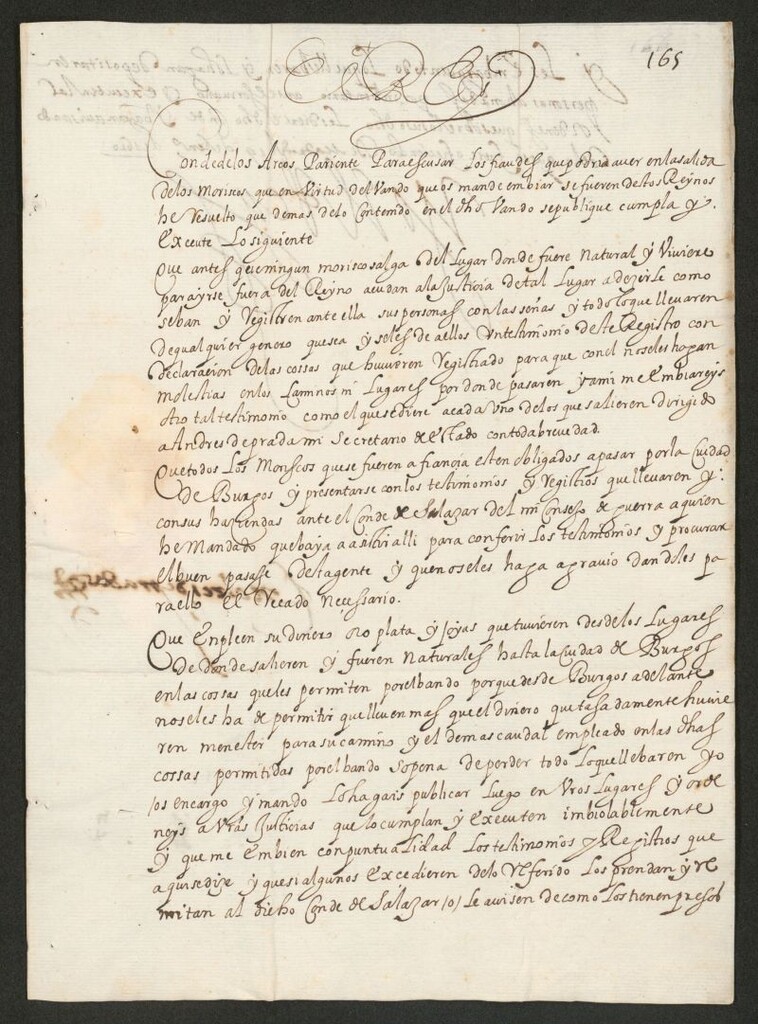 165
El Rey
Conde de los Arcos Pariente Para escusar los fraudes que podria aver en la salida
de los moriscos que en Virtud del Vando que os mande embiar se fueren destos Reynos
he Resuelto que demas delo Contenido en el dho Vando se publique cumpla y
Execute Lo siguiente
Que antes que ningun morisco salga del Lugar donde fuere Natural y Viviere
para yrse fuera del Reyno acudan a la Justicia de tal Lugar a dezirle como
se ban y Registren ante ella sus personas con las señas y todo lo que llevaren
de qualquier genero que sea y se les de a ellos Un testimonio deste Registro con
declaracion de las cossas que huvieren Registrado para que con el no se les hagan
molestias en los Caminos ni Lugares por donde pasaren y a mi me Embiareys
otro tal testimonio como el que se diere a cada Uno de los que salieren dirigido
a Andres de prada mi Secretario de Estado con toda brevedad.
Que todos Los Moriscos que se fueren a francia esten obligados a pasar por la Ciudad
de Burgos y presentarse con los testimonios y Registros que llevaren y
con sus haziendas ante el Conde de Salazar del mi Consejo de guerra a quien
he Mandado que baya a asistir alli para conferir Los testimonios y procurar
el buen pasaje desta gente y que no se les haga agravio dandoles pa
ra ello el Recado Necessario.
Que Empleen su dinero oro plata y Joyas que tuvieren desde los Lugares
de donde salieren y fueren Naturales hasta la Ciudad de Burgos
en las cossas que les permiten por el bando porque desde Burgos adelante
no se les ha de permitir que lleven mas que el dinero que tasadamente huvie
ren menester para su camino y el demas caudal empleado en las dhas
cossas permitidas por el bando so pena de perder todo Lo que llebaren yo
os encargo y mando Lo hagais publicar Luego en Vros Lugares y orde
neys a Vras Justicias que lo cumplan y Executen imbiolablemente
y que me Embien con puntualidad Los testimonios y Registros que
aqui se dize y que si algunos Excedieren delo Referido Los prendan y Re
mitan al dicho Conde de Salazar /o/ Le avisen de como Los tienen presos